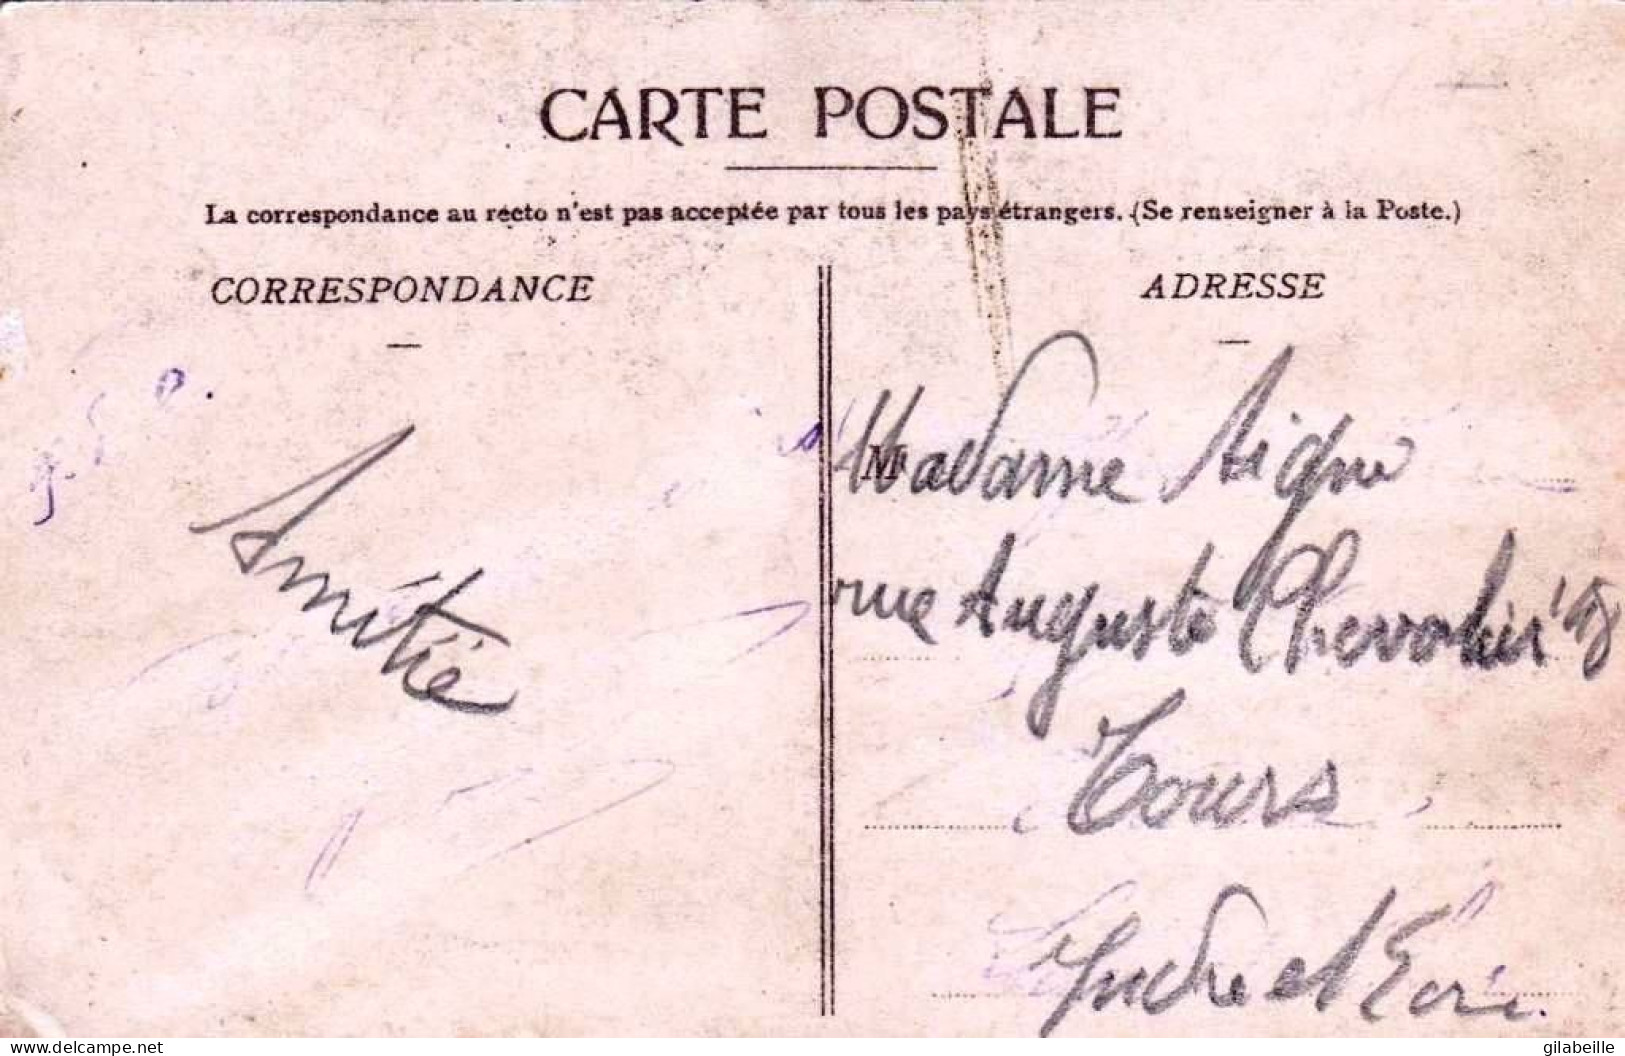 CARTE POSTALE
La correspondance au recto n'est pas acceptée par tous les pays étrangers. (Se renseigner à la Poste.)
CORRESPONDANCE
Amitié
ADRESSE
M
Madame
rue Auguste Chevalier 18
Tours
Indre et Loire.
www.delcampe.net
gilabeille